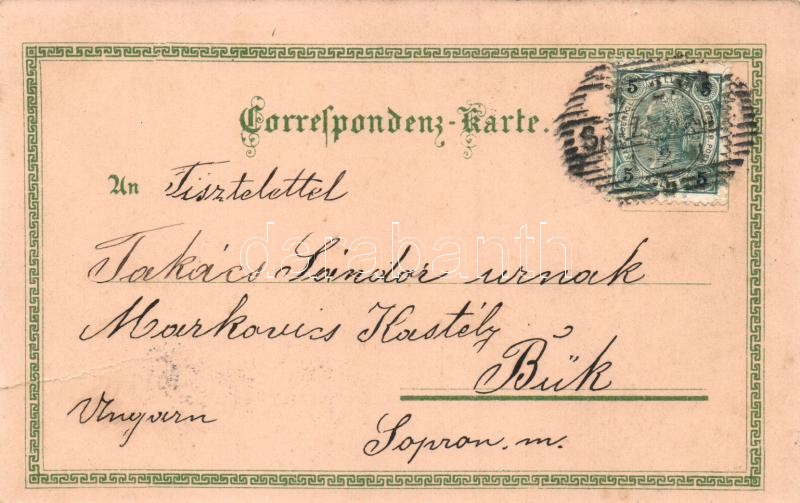 Correspondenz-Karte.
5 5
An Tisztelettel
Takács Sándor urnak
darabanth
Markovics Kastély
Bük
Ungarn
Sopron. m.
5 5